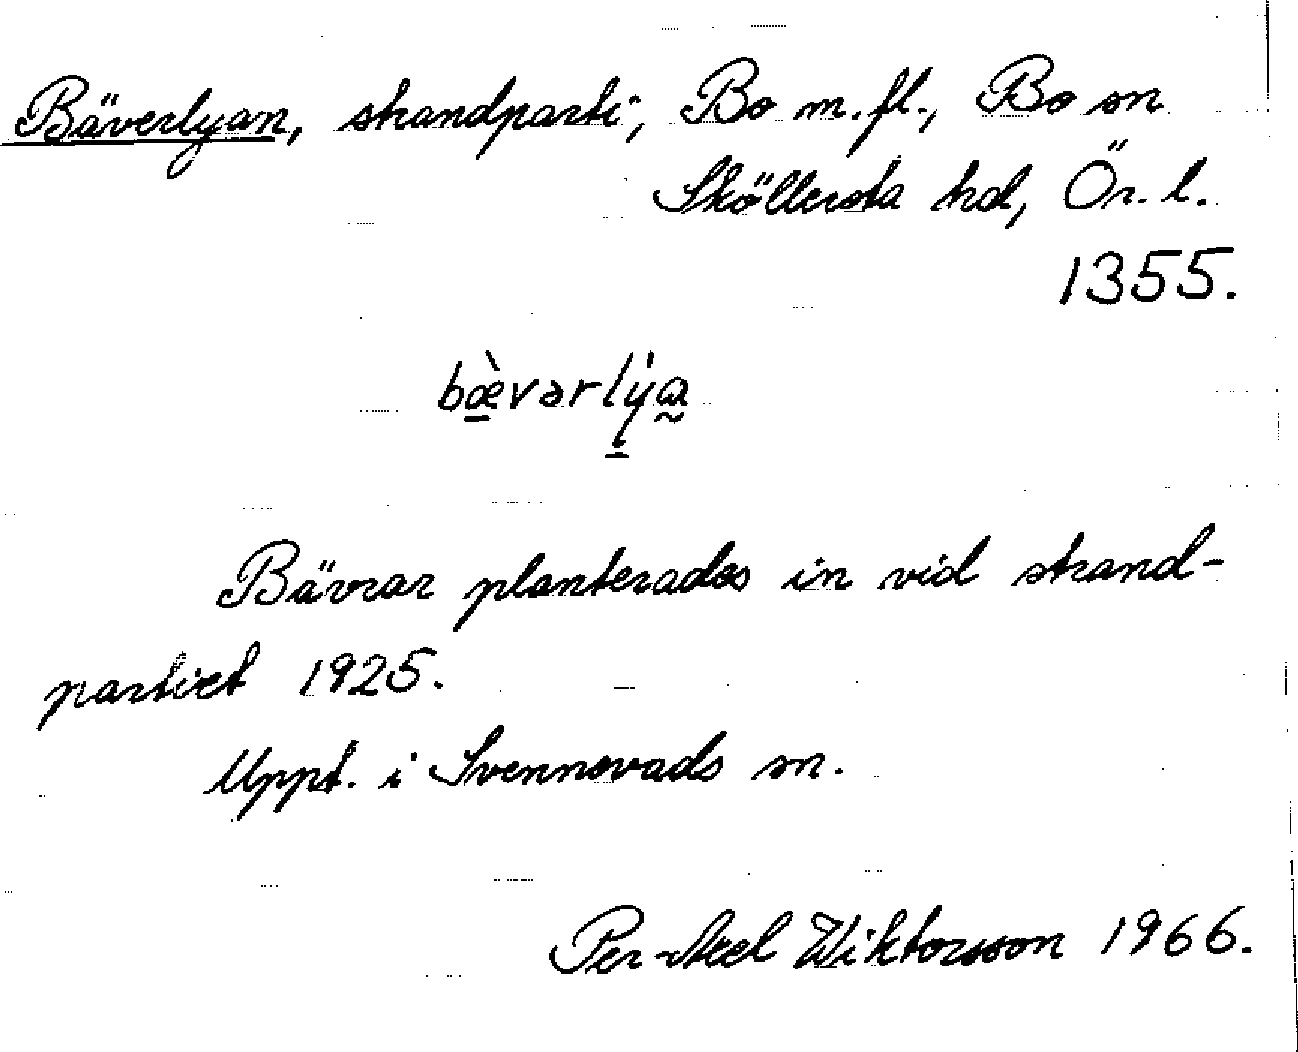 Bäverlyan, strandparti, Bo m. fl., Bo sn
Sköllersta hd, Ör. l.
1355.
bæ̀vərlýa
Bävrar planterades in vid strand-
partiet 1925.
Uppt. i Svennevads sn.
Per-Axel Wiktorsson 1966.